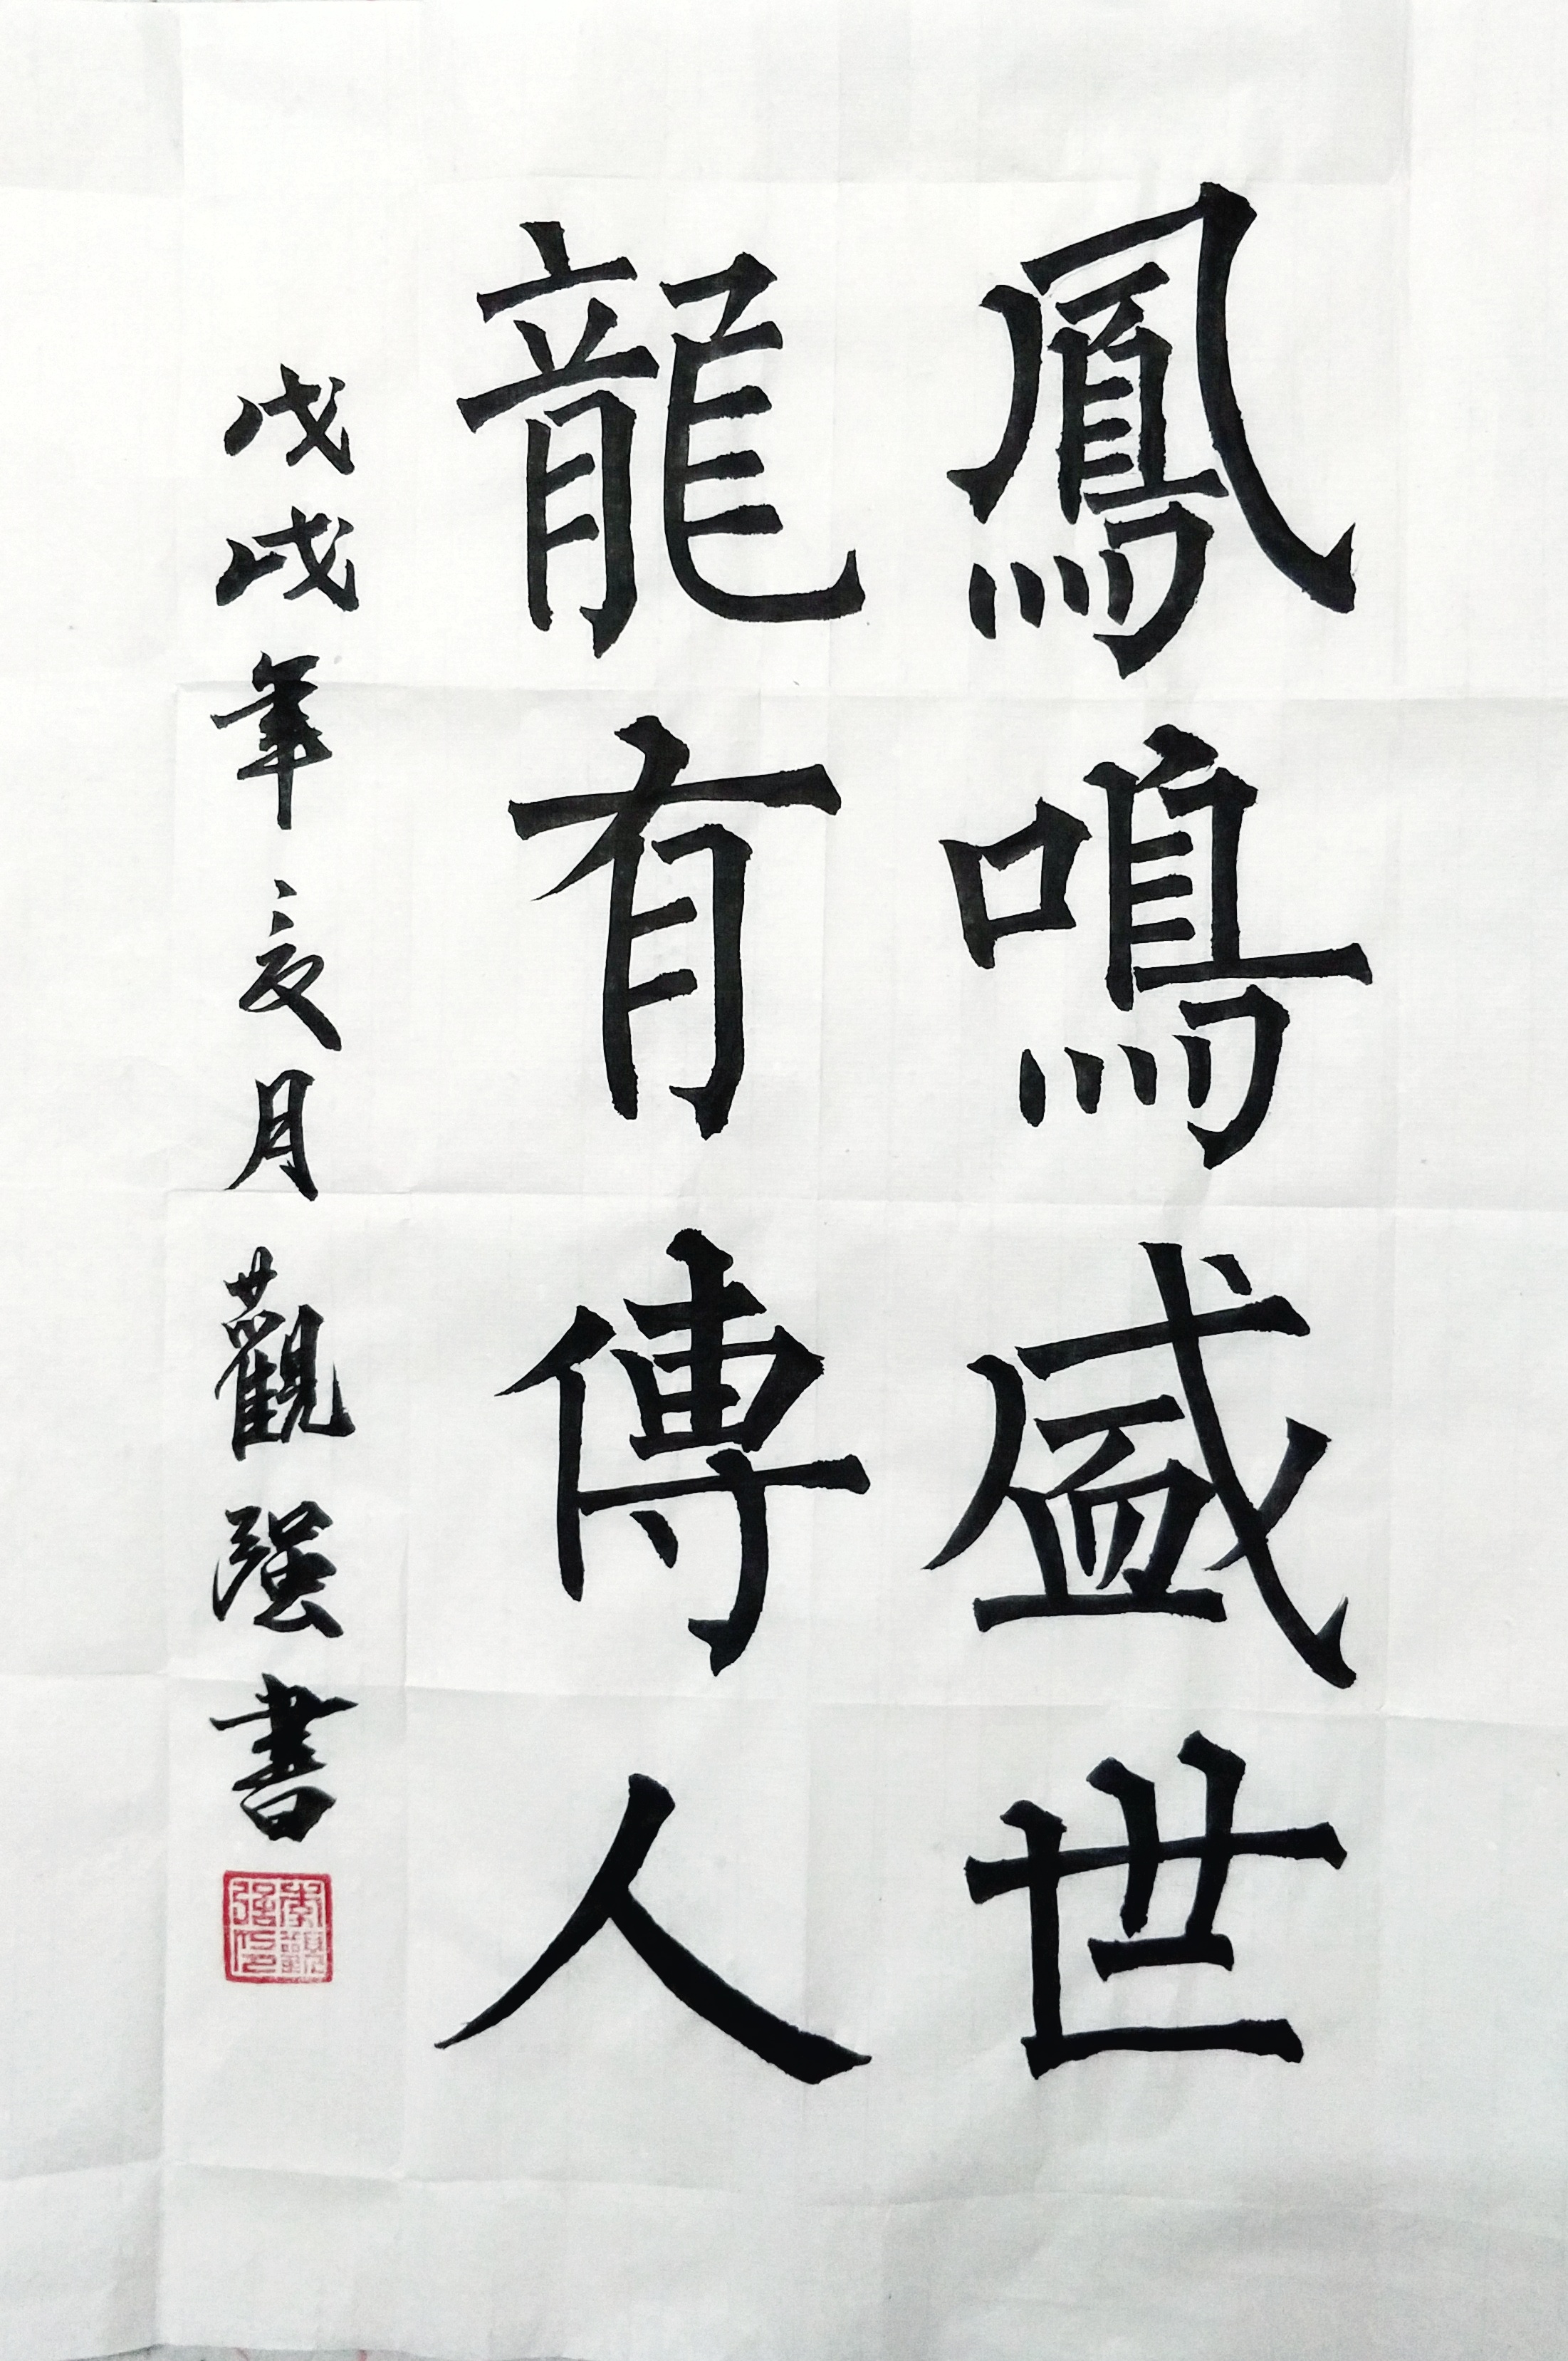 鳳鳴盛世
龍有傳人
戊戌年亥月觀强書
李觀强印